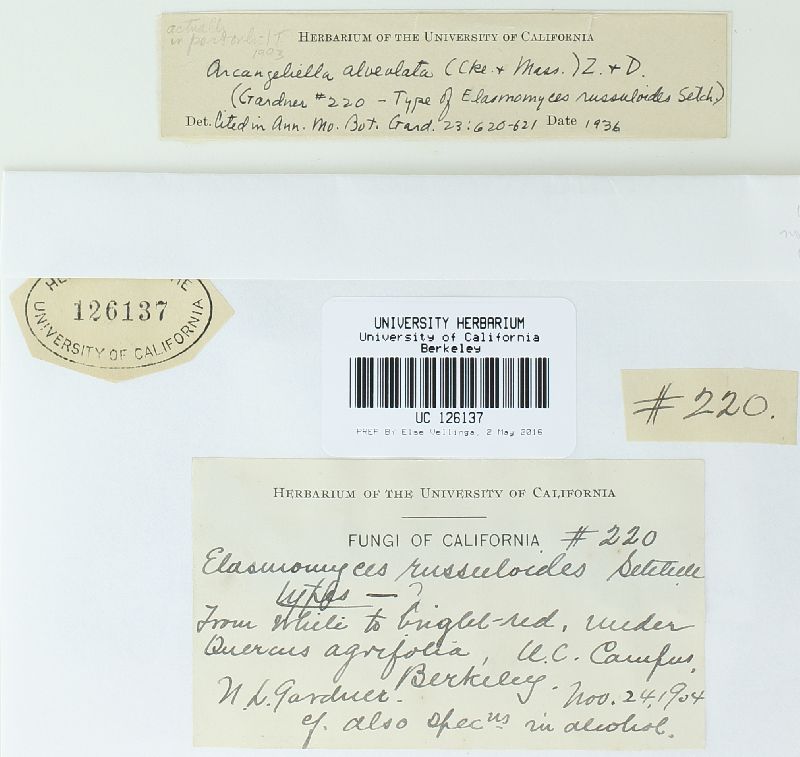 actually
in part only: IT
1903
HERBARIUM OF THE UNIVERSITY OF CALIFORNIA
Arcangeliella alveolata (Cke. & Mass.) Z. & D.
(Gardner #220 – Type of Elasmomyces russuloides Setch.)
Det. Cited in Ann. Mo. Bot. Gard. 23:620-621 Date 1936
126137
UNIVERSITY OF CALIFORNIA
UNIVERSITY HERBARIUM
University of California
Berkeley
UC 126137
PREP BY Else Vellinga, 2 May 2016
#220.
HERBARIUM OF THE UNIVERSITY OF CALIFORNIA
FUNGI OF CALIFORNIA #220
Elasmomyces russuloides Setchell
types — ?
From white to bright-red, under
Quercus agrifolia, U.C. Campus,
Berkeley.
N.L. Gardner. Nov. 24, 1904
cf. also specns in alcohol.